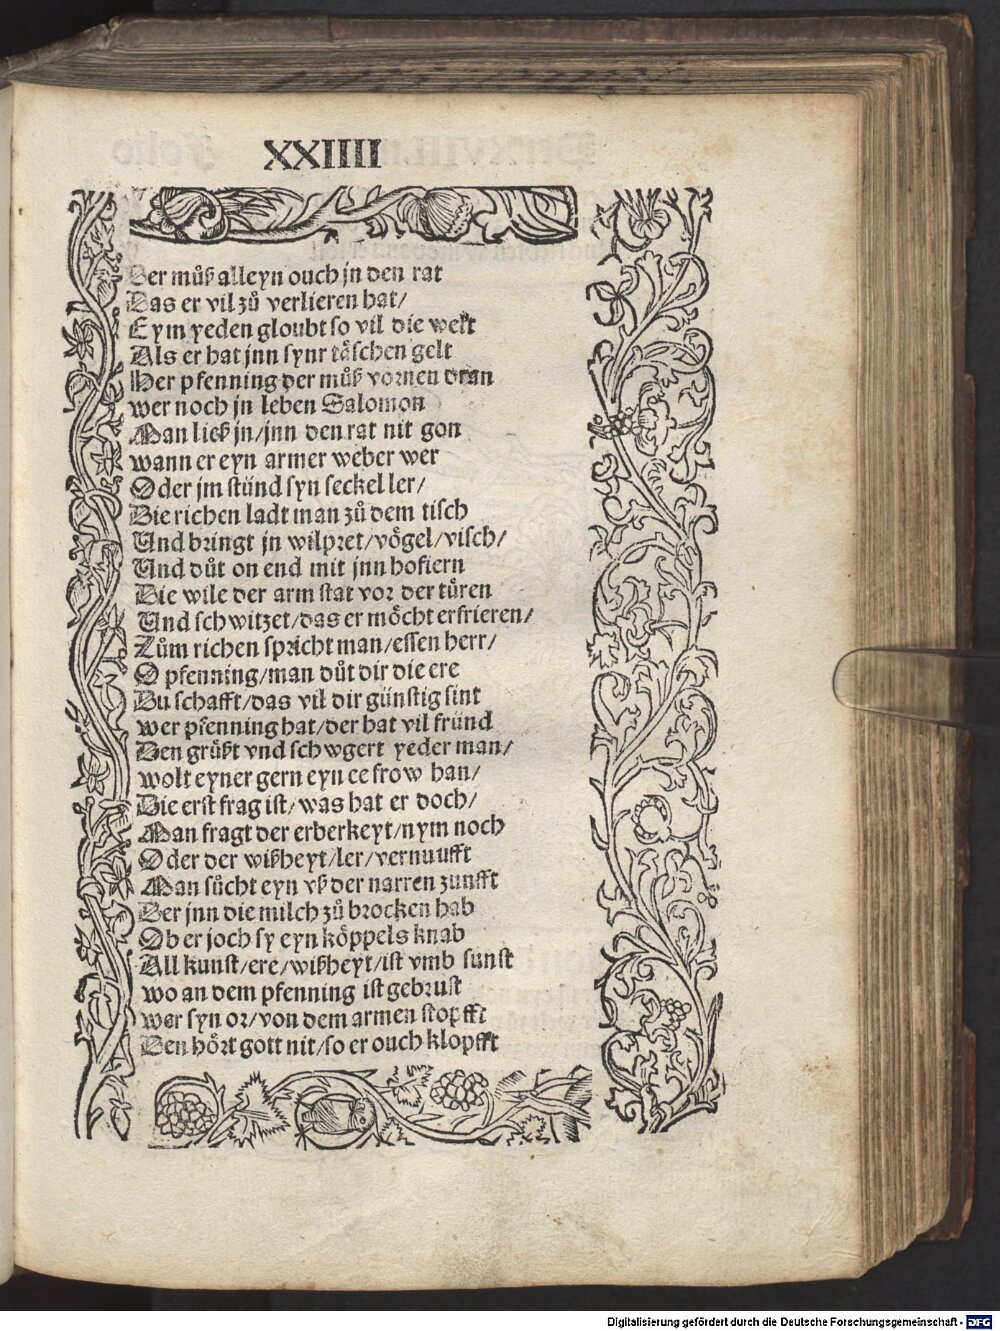 XXIIII
Der můß alleyn ouch jn den rat
Das er vil zů verlieren hat/
Eym yeden gloubt so vil die welt
Als er hat jnn synr täschen gelt
Her pfenning der můß vornen dran
wer noch jn leben Salomon
Man ließ jn/jnn den rat nit gon
wann er eyn armer weber wer
Oder jm stünd syn seckel ler/
Die richen ladt man zů dem tisch
Und bringt jn wilpret/vögel/visch/
Und důt on end mit jnn hofiern
Die wile der arm stat vor der türen
Und schwitzet/das er möcht erfrieren/
Zům richen spricht man/essen herr/
O pfenning/man důt dir die ere
Du schafft/das vil dir günstig sint
wer pfenning hat/der hat vil fründ
Den grüßt vnd schwgert yeder man/
wolt eyner gern eyn ee frow han/
Die erst frag ist/was hat er doch/
Man fragt der erberkeyt/nym noch
Oder der wißheyt/ler/vernuufft
Man sůcht eyn vß der narren zunfft
Der jnn die milch zů brocken hab
Ob er joch sy eyn köppels knab
All kunst/ere/wißheyt/ist vmb sunst
wo an dem pfenning ist gebrust
wer syn or/von dem armen stopfft
Den hört gott nit/so er ouch klopfft
Digitalisierung gefördert durch die Deutsche Forschungsgemeinschaft - DFG